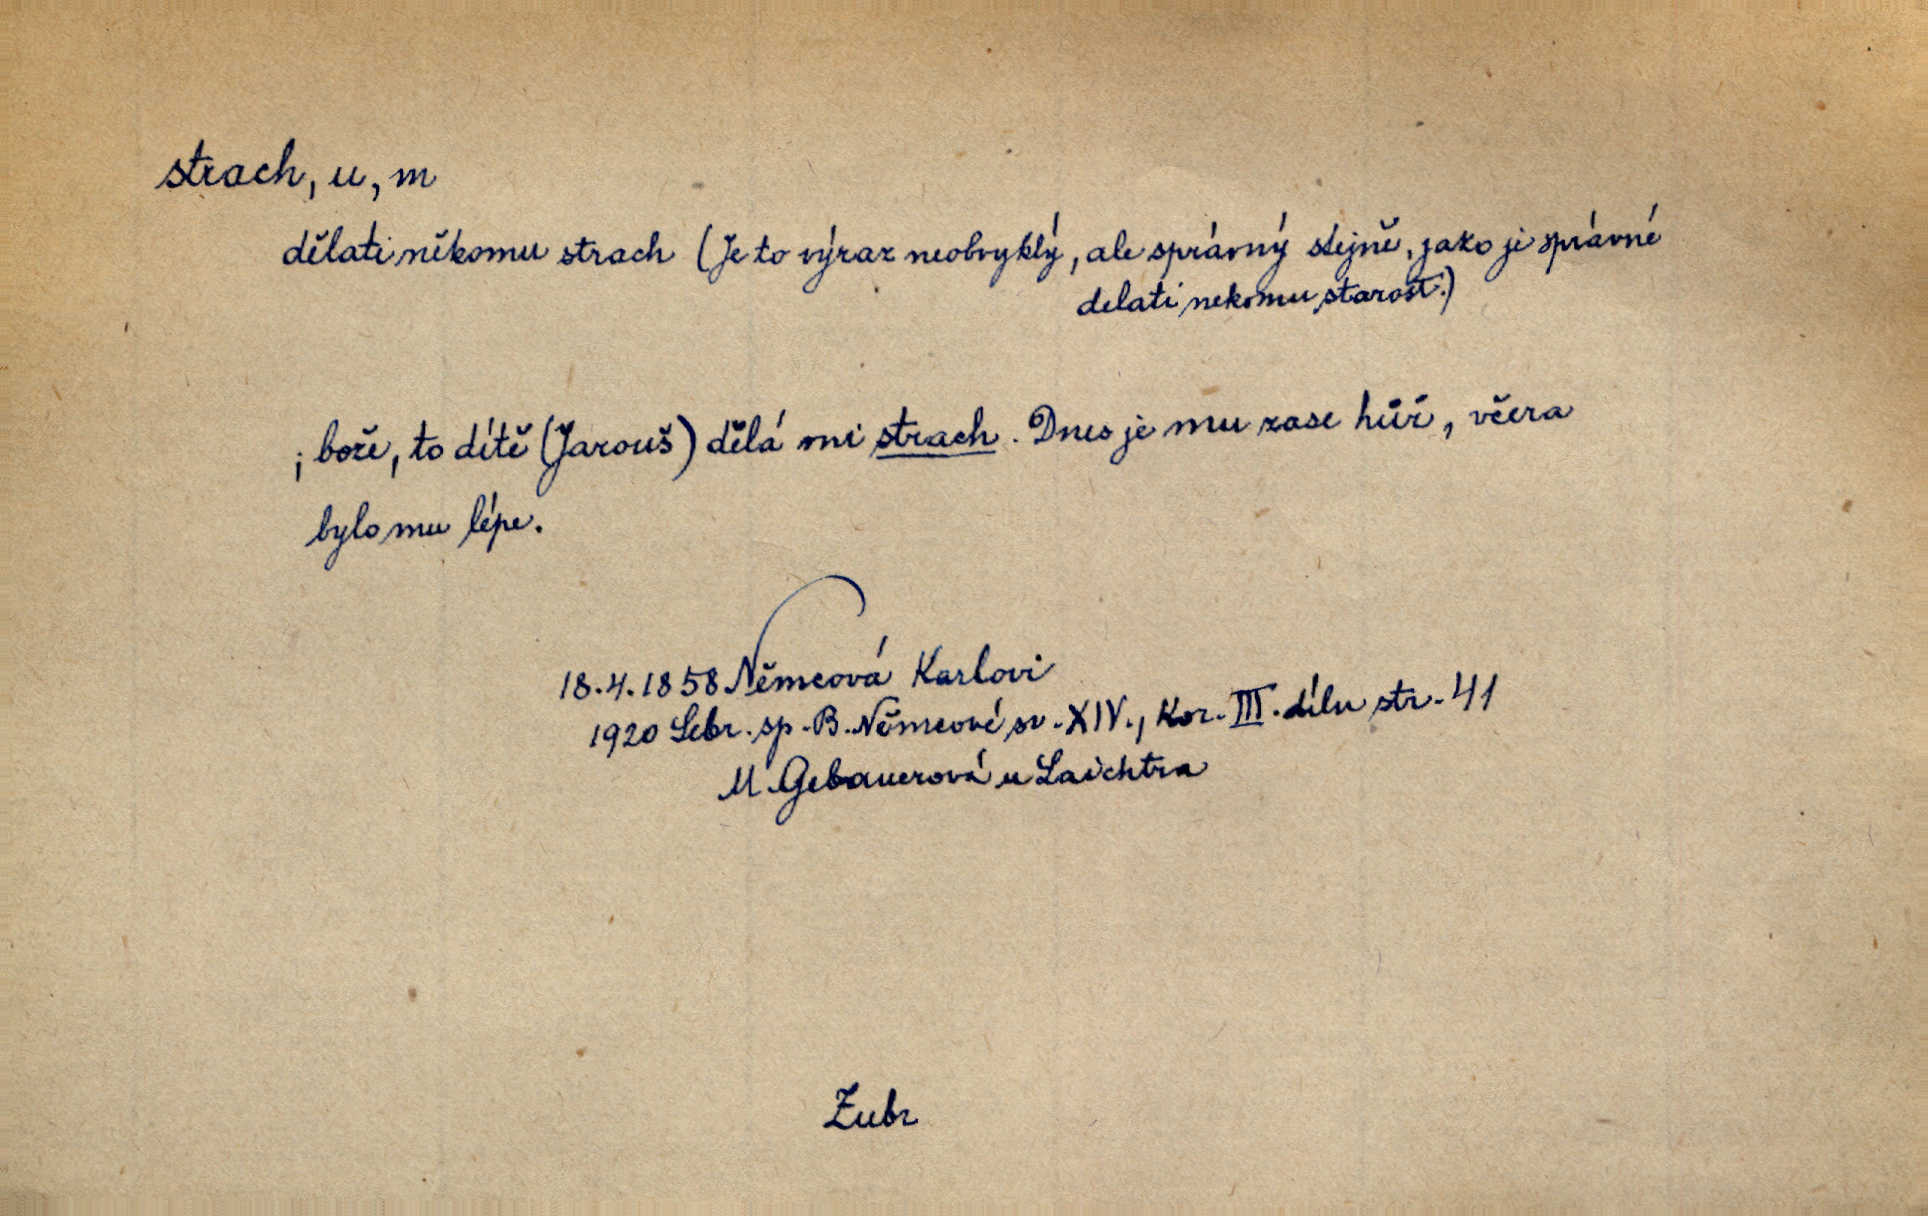 strach, u, m
dělati někomu strach (Je to výraz neobvyklý, ale správný stejně, jako je správné
delati nekomu starost.)
; bože, to dítě (Jarouš) dělá mi strach. Dnes je mu zase hůř, včera
bylo mu lépe.
18.4.1858 Němcová Karlovi
1920 Sebr. sp. B. Němcové sv. XIV., Kor. III. dílu str. 41
M. Gebauerová u Laichtra
Zubr